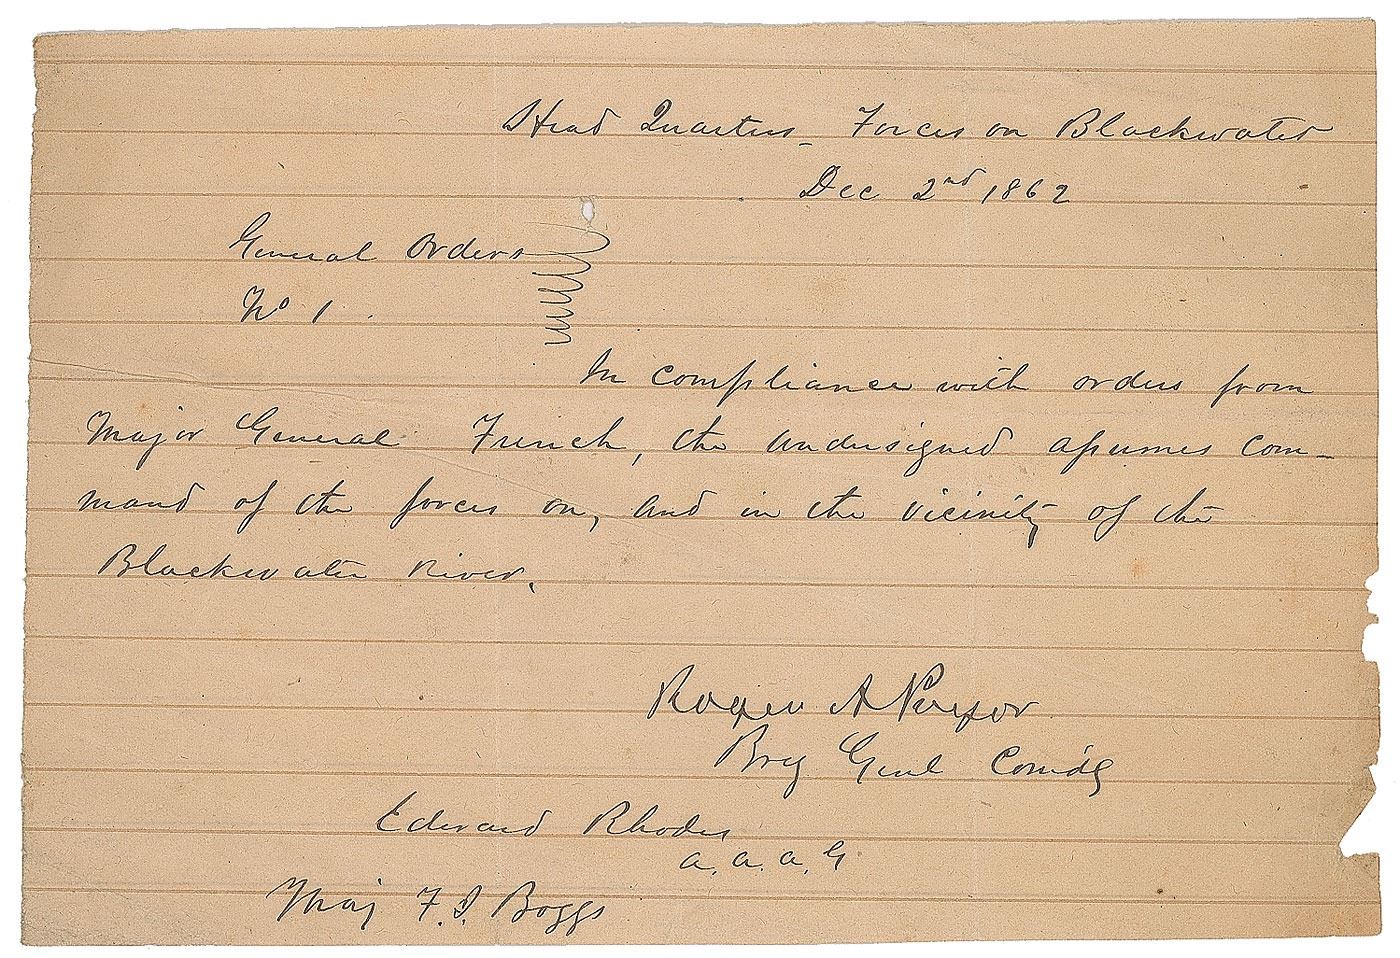 Head Quarters Forces on Blackwater
Dec 2nd 1862
General Orders
No 1.
In compliance with orders from
Major General French, the undersigned assumes com-
mand of the forces on, and in the vicinity of the
Blackwater River.
Roger A Pryor
Brig Genl Comdg
Edward Rhodes
a. a. a. G
Maj F. J. Boggs